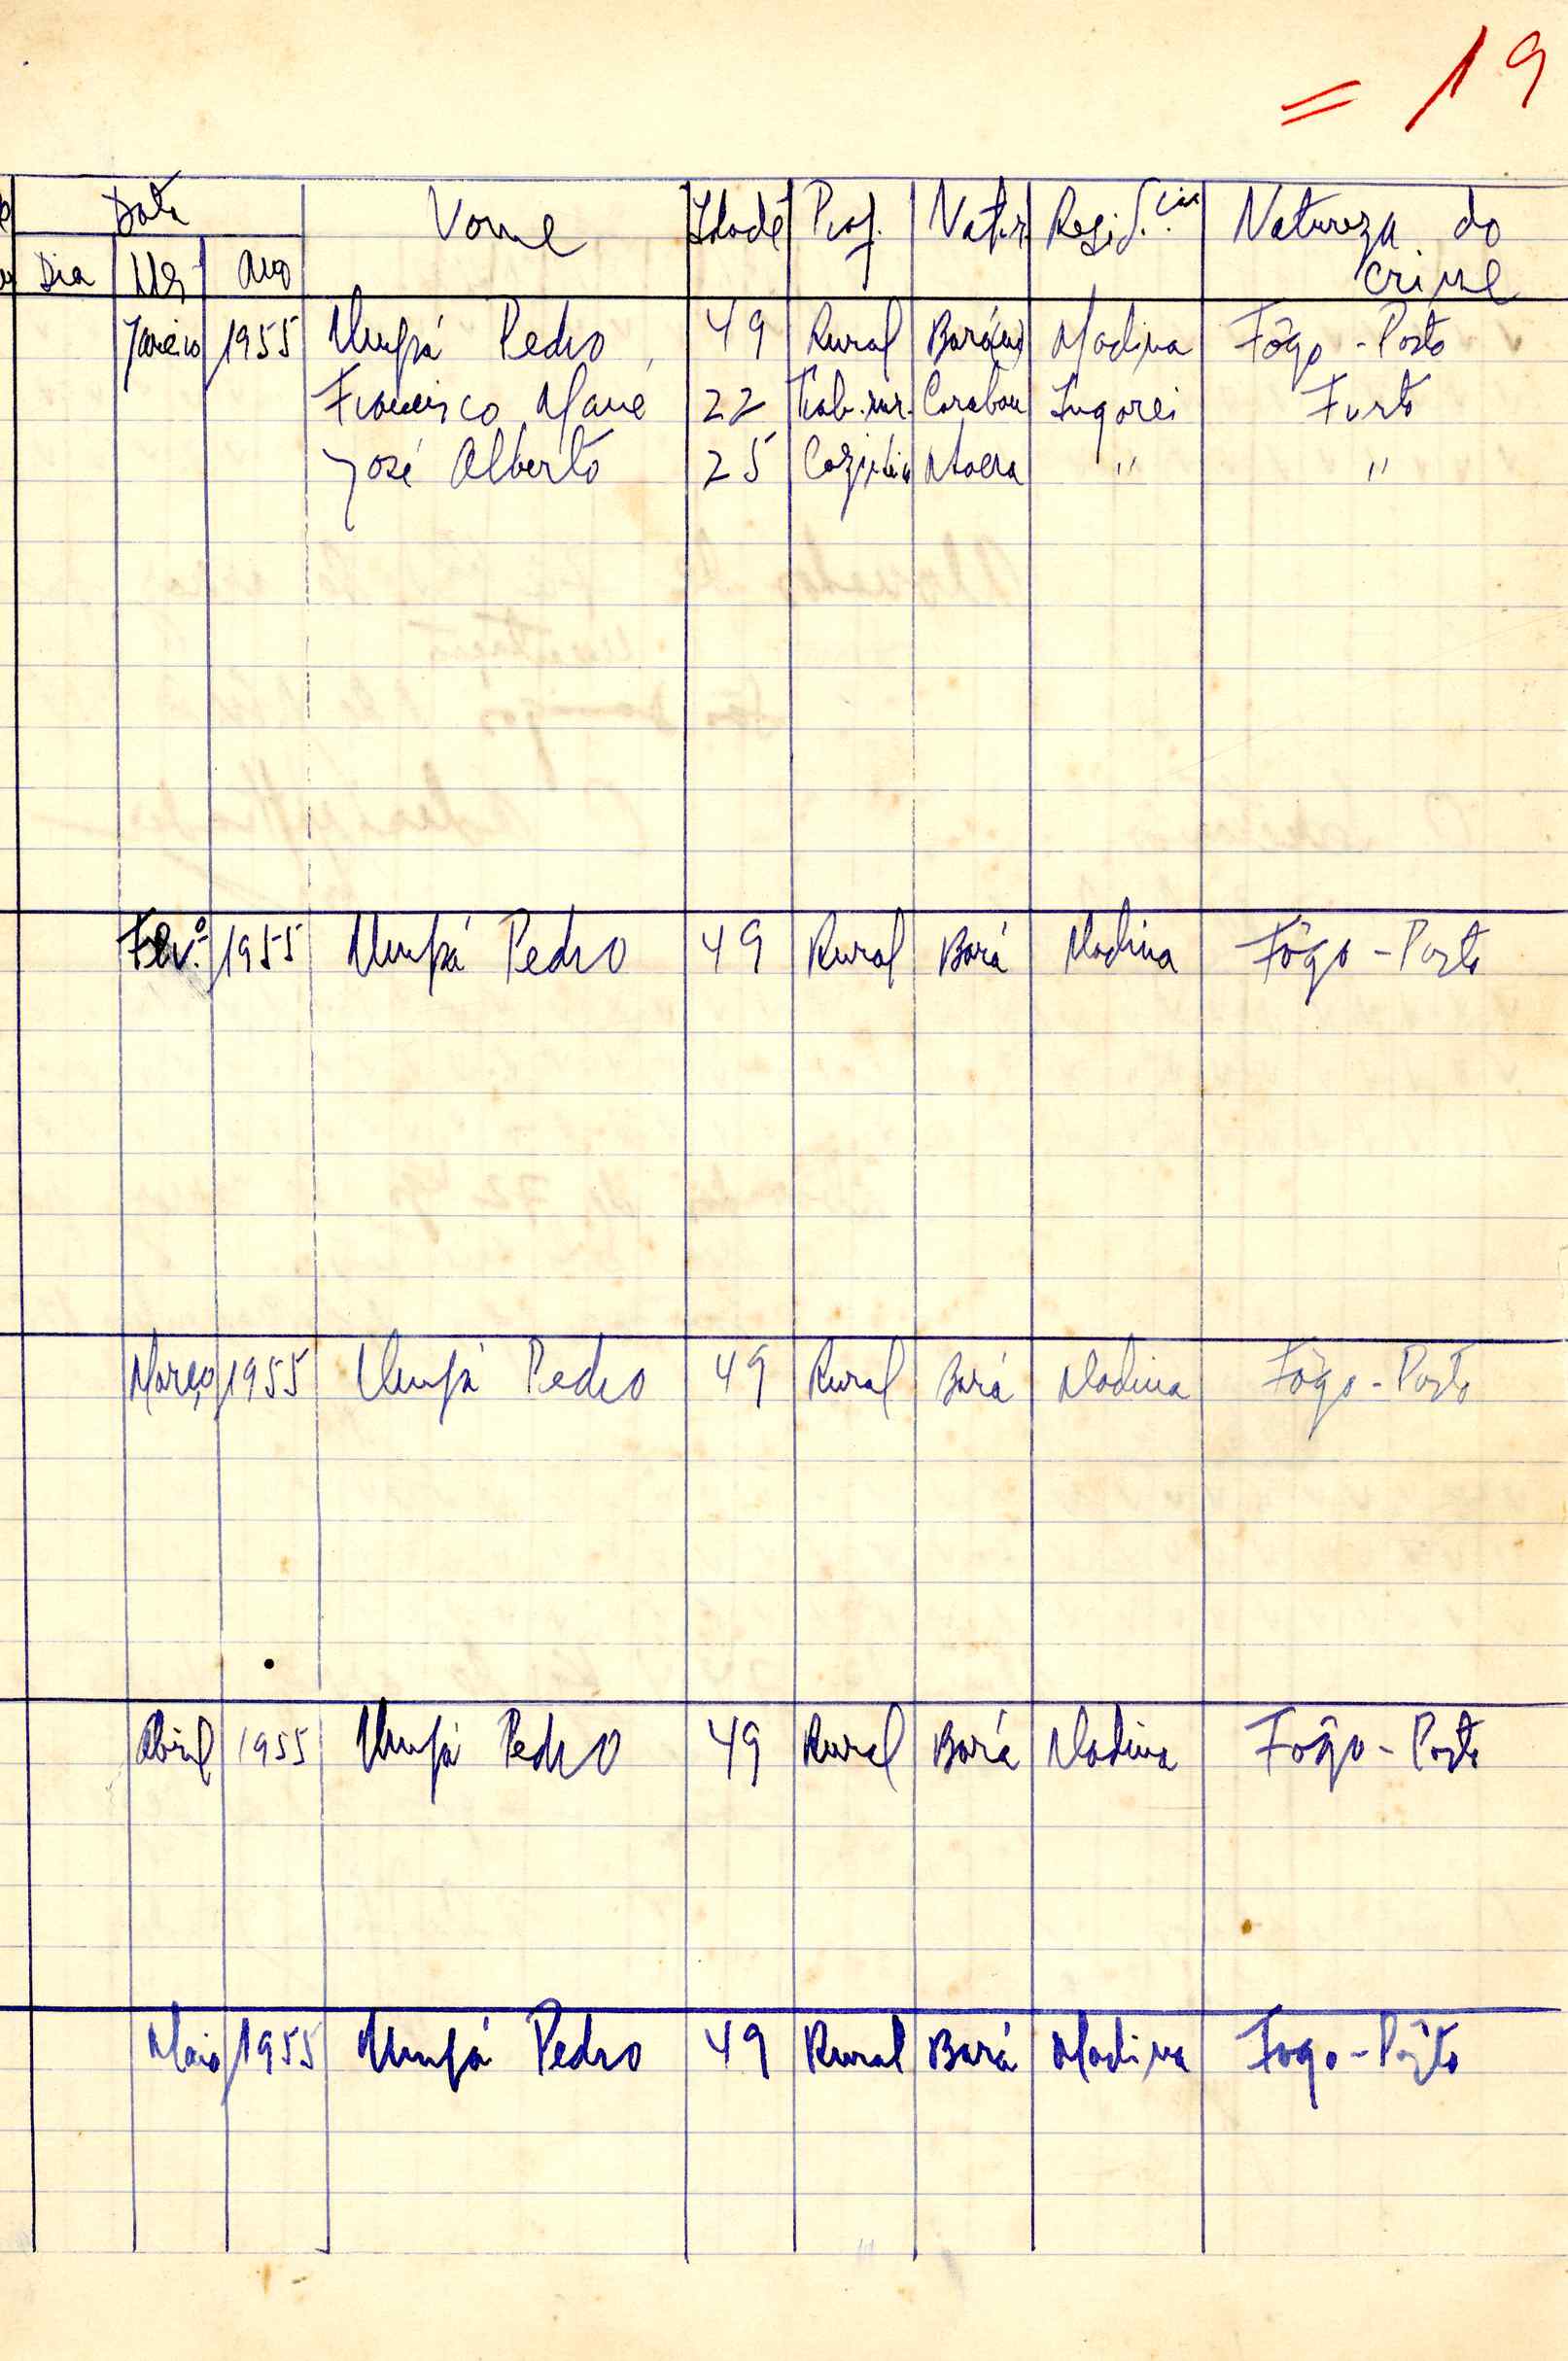 = 19
Data Nome Idade Prof. Natur. Resid.cia Natureza do
Dia Mês Ano crime
Janeiro 1955 Pedro 49 Rural Bará Madina Fôgo - Posto
Francisco Mané 22 Trab. rur. Ingorei Furto
José Alberto 25 " "
Fev.º 1955 Pedro 49 Rural Bará Madina Fôgo - Posto
Março 1955 Pedro 49 Rural Bará Madina Fôgo - Posto
Abril 1955 Pedro 49 Rural Bará Madina Fôgo - Posto
Maio 1955 Pedro 49 Rural Bará Madina Fogo - Pôsto